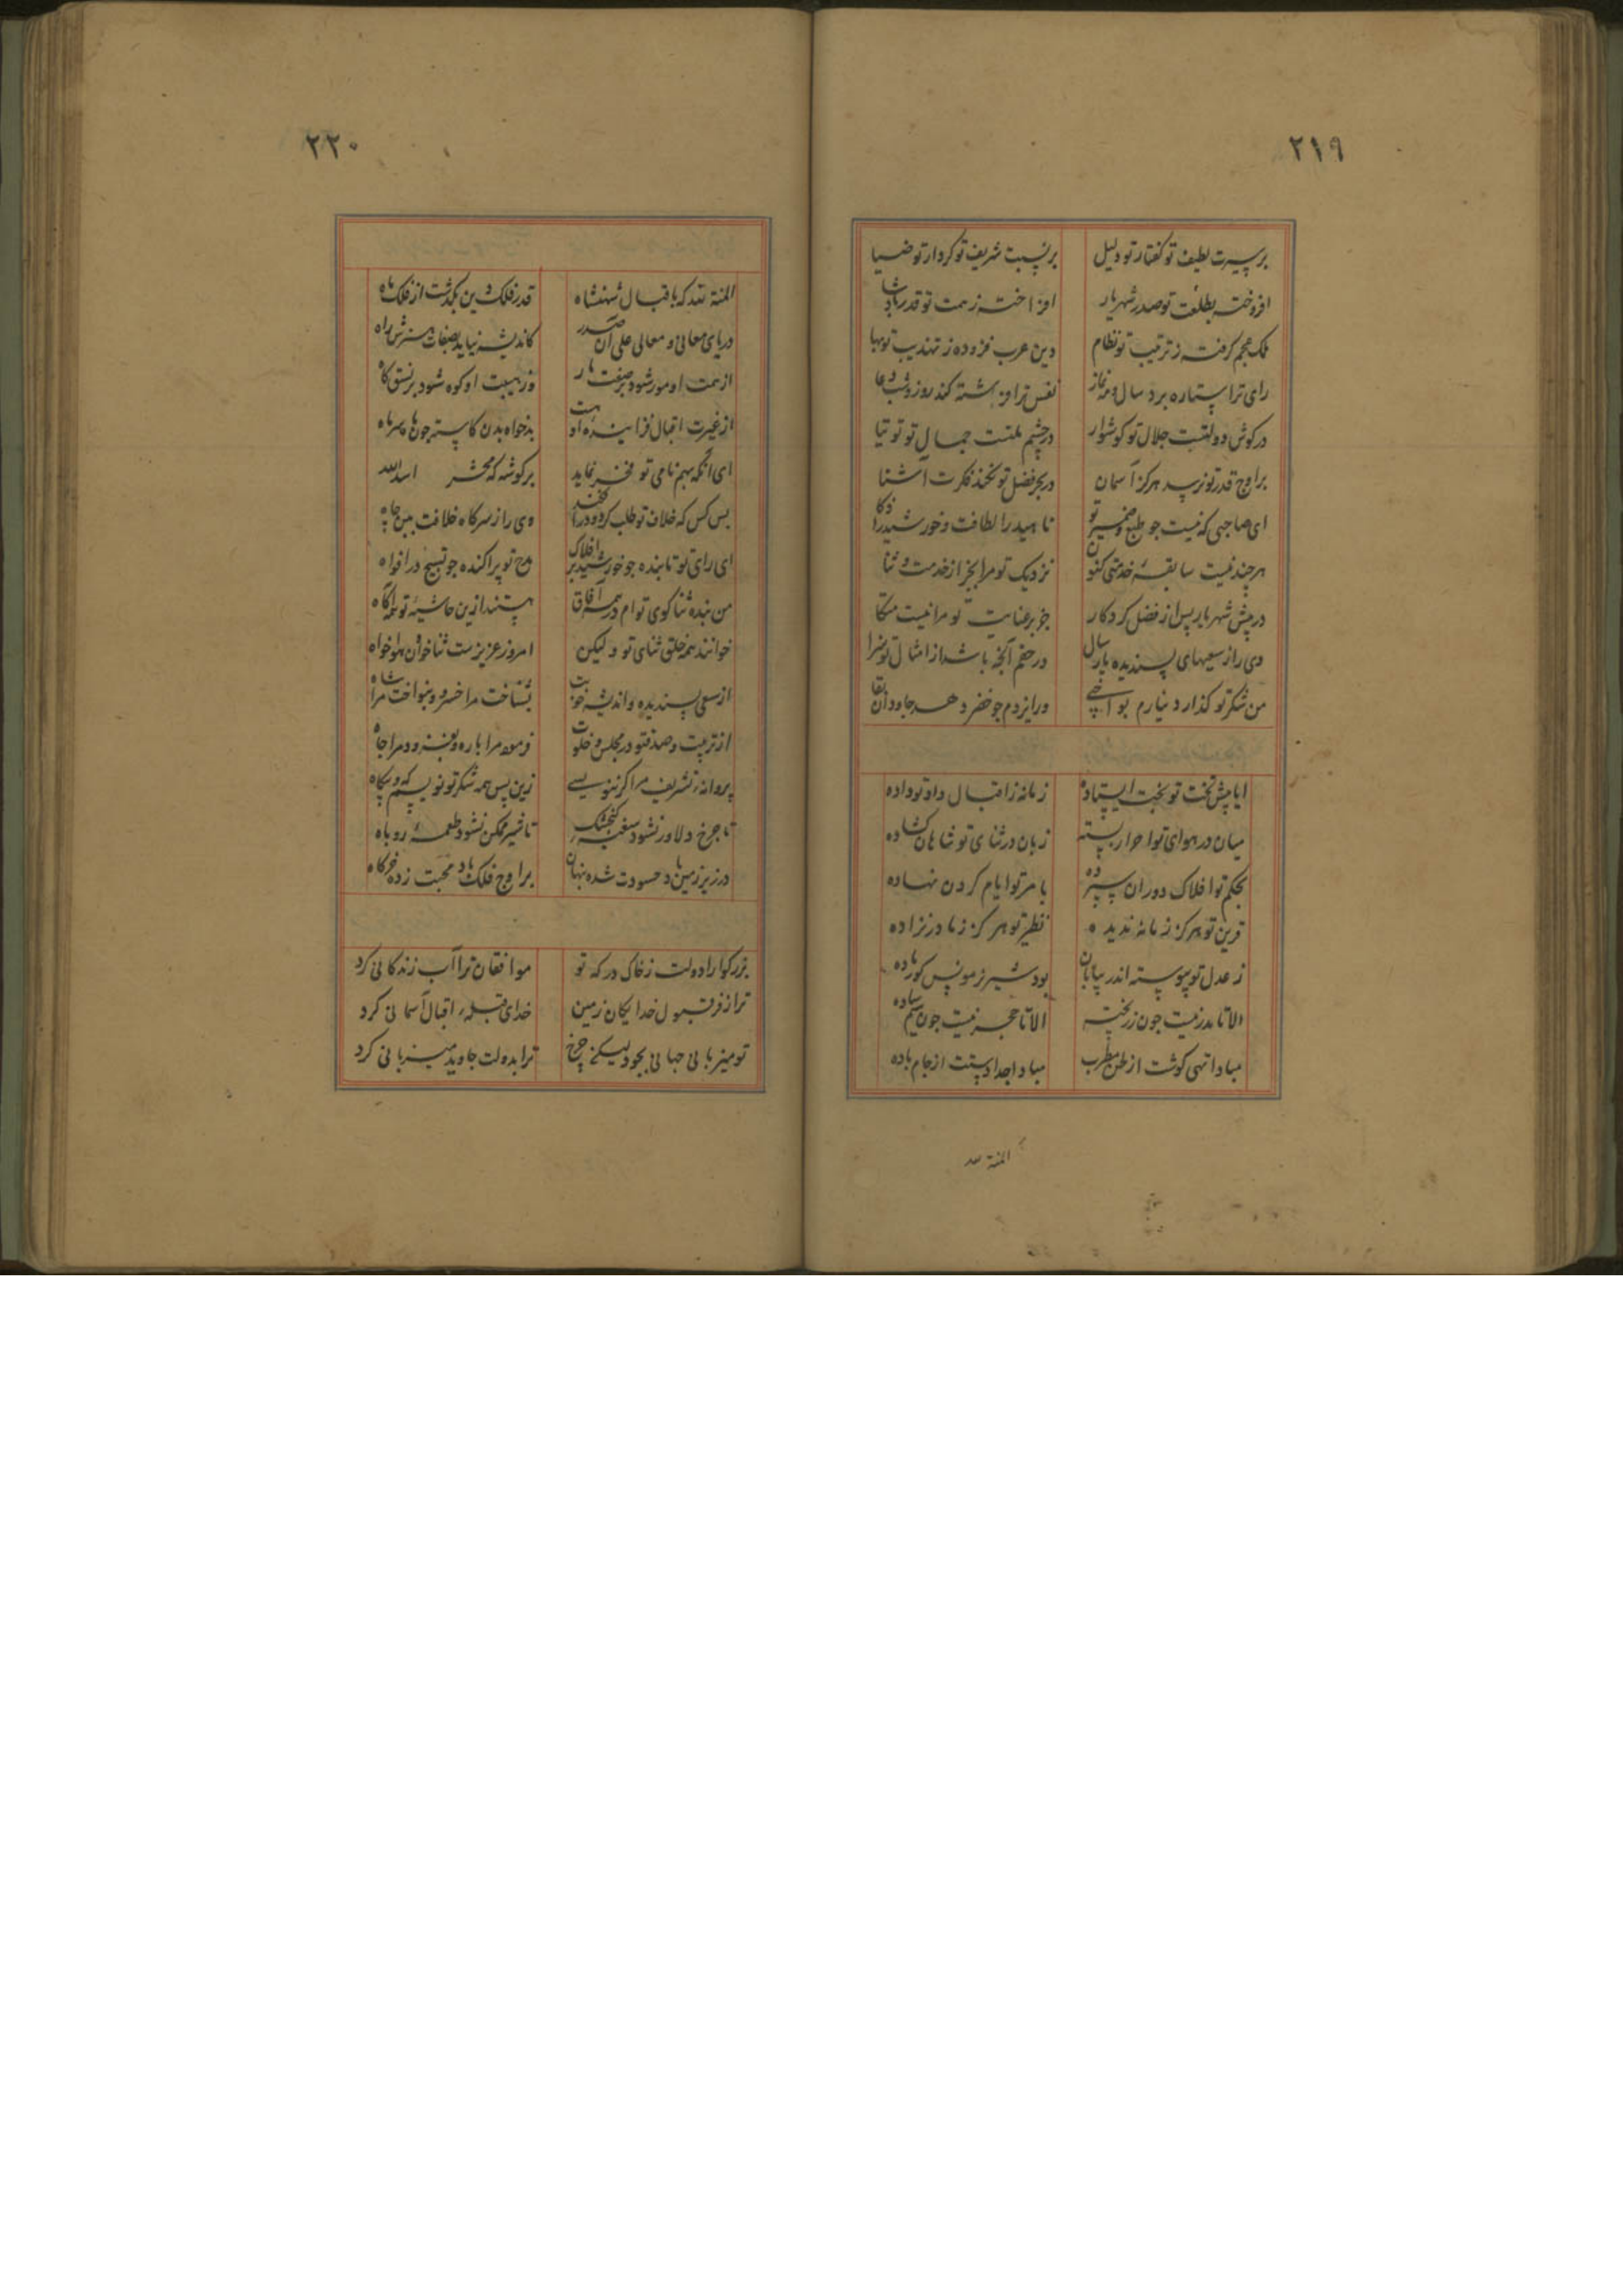 ۲۱۹
بر سیرت لطیف تو گفتار تو دلیل بر نسبت شریف تو کردار تو ضیا
افروخته بطلعت تو صدر شهریار افراخته ز همت تو قدر پادشا
ملک عجم گرفته ز ترتیب تو نظام دین عرب فزوده ز تهذیب تو بها
رای ترا ستاره برد سال و مه نماز نفس ترا فرشته کند روز و شب دعا
در کوش دولتست جلال تو کوشوار در چشم ملتست جمال تو توتیا
بر اوج قدر تو نرسد هرکز آسمان در بحر فضل تو نکند فکرت آشنا
ای صاحبی که نیست جو طبع و ضمیر تو ناهید را لطافت و خورشید را ذکا
هر چند نیست سابقه خدمتی کنون نزدیک تو مرا بجز از خدمت و ثنا
در پیش شهریار پس از فضل کردکار جز بر عنایت تو مرا نیست متکا
دی راز سعیهای پسندیده پار سال در حقم آنچه باشد از امثال تو سزا
من شکر تو کذارد نیارم بواجبی ور ایزدم جو خضر دهد جاودان بقا
ایا پیش تخت تو بخت ایستاده زمانه ز اقبال داد تو داده
میان در هوای تو احرار بسته زبان در ثنای تو شاهان کشاده
بحکم تو افلاک دوران سپرده بامر تو ایام کردن نهاده
قرین تو هرکز زمانه ندیده نظیر تو هرکز ز مادر نزاده
ز عدل تو پیوسته اندر بیابان بود شیر نر مونس کور ماده
الا تا مدر نیست جون زر پخته الا تا حجر نیست جون سیم ساده
مبادا تهی کوشت از لحن مطرب مبادا جدا دستت از جام باده
المنة لله
۲۲۰
المنة لله که باقبال شهنشاه قدر فلک دین بکذشت از فلک ماه
دریای معانی و معالی علی آن صدر کاندیشه نیابد بصفات هنرش راه
از همت او مور شود بر صفت مار وز هیبت او کوه شود بر نسق کاه
از غیرت اقبال فزاینده اوست بدخواه بدن کاسته جون ماه بهر ماه
ای آنکه بهم نامی تو فخر نماید بر کوشه که محشر اسدالله
بس کس که خلاف تو طلب کرد و درافکند وی را ز سر کاه خلافت ببن جاه
ای رای تو تابنده جو خورشید بر افلاک مدح تو پراکنده جو تسبیح در افواه
من بنده ثنا کوی توام در همه آفاق هستند ازین حاشیه تو همه آکاه
خوانند همه خلق ثنای تو ولیکن امروز عزیزست ثناخوان هواخواه
از سعی پسندیده و اندیشه خوبت بشناخت مرا خسرو و بنواخت مرا شاه
از تربیت و صدق تو در مجلس و خلوت فرمود مرا باره و بفزود مرا جاه
پروانه تشریف مرا کر بنویسی زین پس همه شکر تو نویسم که و بیکاه
تا جرخ دلاور نشود سغبه کنجشک تا شیر ممکن نشود طعمه روباه
در زیر زمین باد حسودت شده پنهان بر اوج فلک باد محبت زده خرکاه
بزرکوارا دولت ز خاک درکه تو موافقان ترا آب زندکانی کرد
ترا ز فر قبول خدایکان زمین خدای قبله اقبال آسمانی کرد
تو میزبانی جهانی بجود لیکن جرخ ترا بدولت جاوید میزبانی کرد